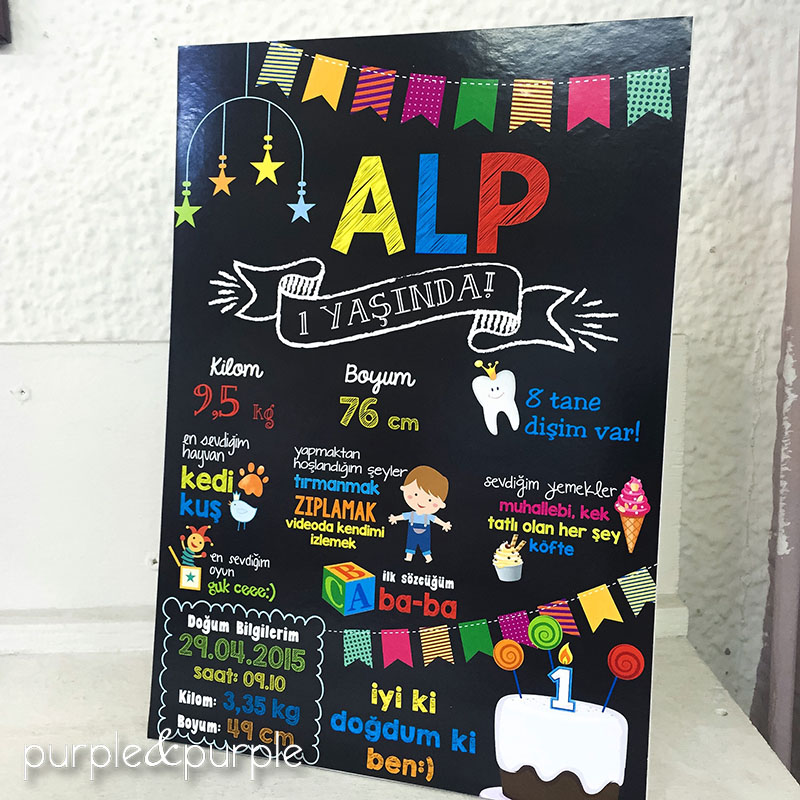 ALP
1 YAŞINDA!
Kilom
9,5 kg
Boyum
76 cm
8 tane
dişim var!
en sevdiğim
hayvan
kedi
kuş
yapmaktan
hoşlandığım şeyler
tırmanmak
ZIPLAMAK
videoda kendimi
izlemek
sevdiğim yemekler
muhallebi, kek
tatlı olan her şey
köfte
en sevdiğim
oyun
guk ceee:)
B
C A
ilk sözcüğüm
ba-ba
Doğum Bilgilerim
29.04.2015
saat: 09.10
Kilom: 3,35 kg
Boyum: 49 cm
iyi ki
doğdum ki
ben:)
1
purple&purple